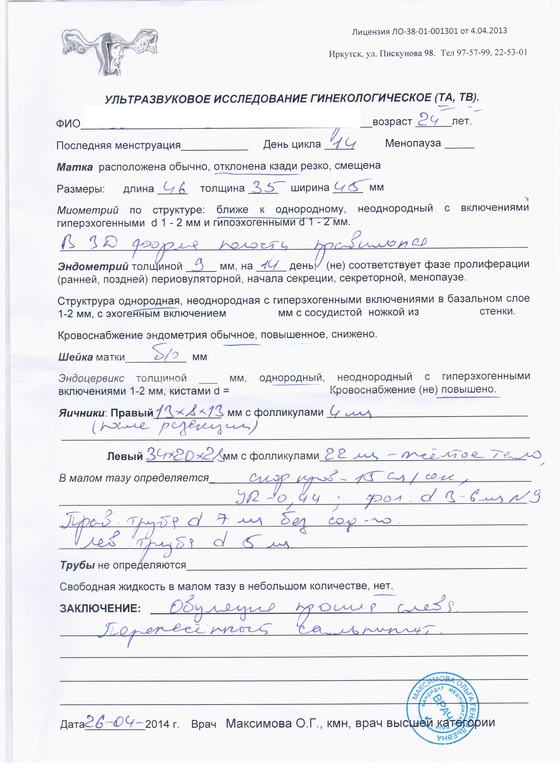 Лицензия ЛО-38-01-001301 от 4.04.2013
Иркутск, ул. Пискунова 98. Тел 97-57-99, 22-53-01
УЛЬТРАЗВУКОВОЕ ИССЛЕДОВАНИЕ ГИНЕКОЛОГИЧЕСКОЕ (ТА, ТВ).
ФИО возраст 24 лет.
Последняя менструация День цикла 14 Менопауза
Матка расположена обычно, отклонена кзади резко, смещена
Размеры: длина 46 толщина 35 ширина 45 мм
Миометрий по структуре: ближе к однородному, неоднородный с включениями
гиперэхогенными d 1 - 2 мм и гипоэхогенными d 1 - 2 мм.
В 3D форма полости правильная
Эндометрий толщиной 9 мм, на 14 день, (не) соответствует фазе пролиферации
(ранней, поздней) периовуляторной, начала секреции, секреторной, менопаузе.
Структура однородная, неоднородная с гиперэхогенными включениями в базальном слое
1-2 мм, с эхогенным включением мм с сосудистой ножкой из стенки.
Кровоснабжение эндометрия обычное, повышенное, снижено.
Шейка матки б/о мм
Эндоцервикс толщиной мм, однородный, неоднородный с гиперэхогенными
включениями 1-2 мм, кистами d = Кровоснабжение (не) повышено.
Яичники: Правый 13х8х13 мм с фолликулами 4 мм
(после резекции)
Левый 34х20х28 мм с фолликулами 22 мм - жёлтое тело,
В малом тазу определяется скор кров - 15 см/сек,
УR-0,44; фол. d 3-6 мм N9
Прав. труба d 7 мм без сод-го.
Лев. труба d 5 мм
Трубы не определяются
Свободная жидкость в малом тазу в небольшом количестве, нет.
ЗАКЛЮЧЕНИЕ: Овуляция прошла слева.
Перенесённый сальпингит.
Дата 26-04-2014 г. Врач Максимова О.Г., кмн, врач высшей категории
МАКСИМОВА ОЛЬГА ГЕННАДЬЕВНА
КАНДИДАТ МЕДИЦИНСКИХ
ВРАЧ